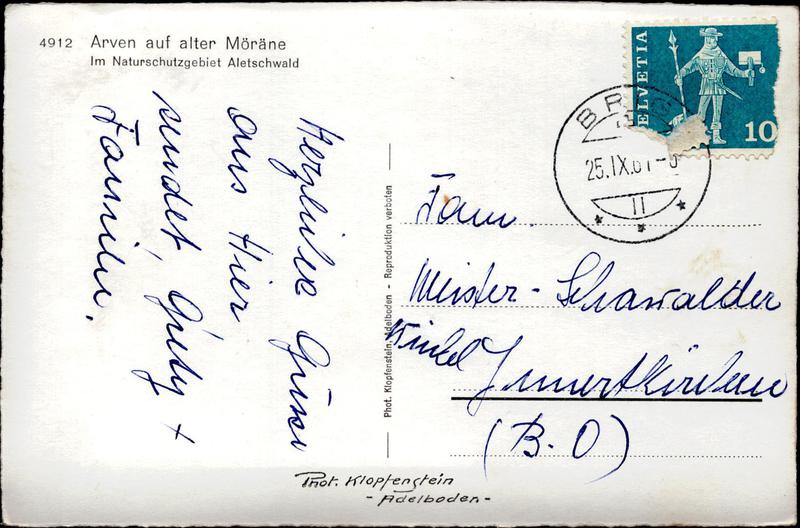 4912 Arven auf alter Möräne
Im Naturschutzgebiet Aletschwald
Herzliche Grüsse
aus Hier
sendet, Güsty +
Familie.
Phot. Klopfenstein, Adelboden - Reproduktion verboten
HELVETIA
10
BRIG
25.IX.61-
II
Fam.
Meister - Schawalder
Winkel
Innertkirchen
(B.O)
Phot. Klopfenstein
- Adelboden -